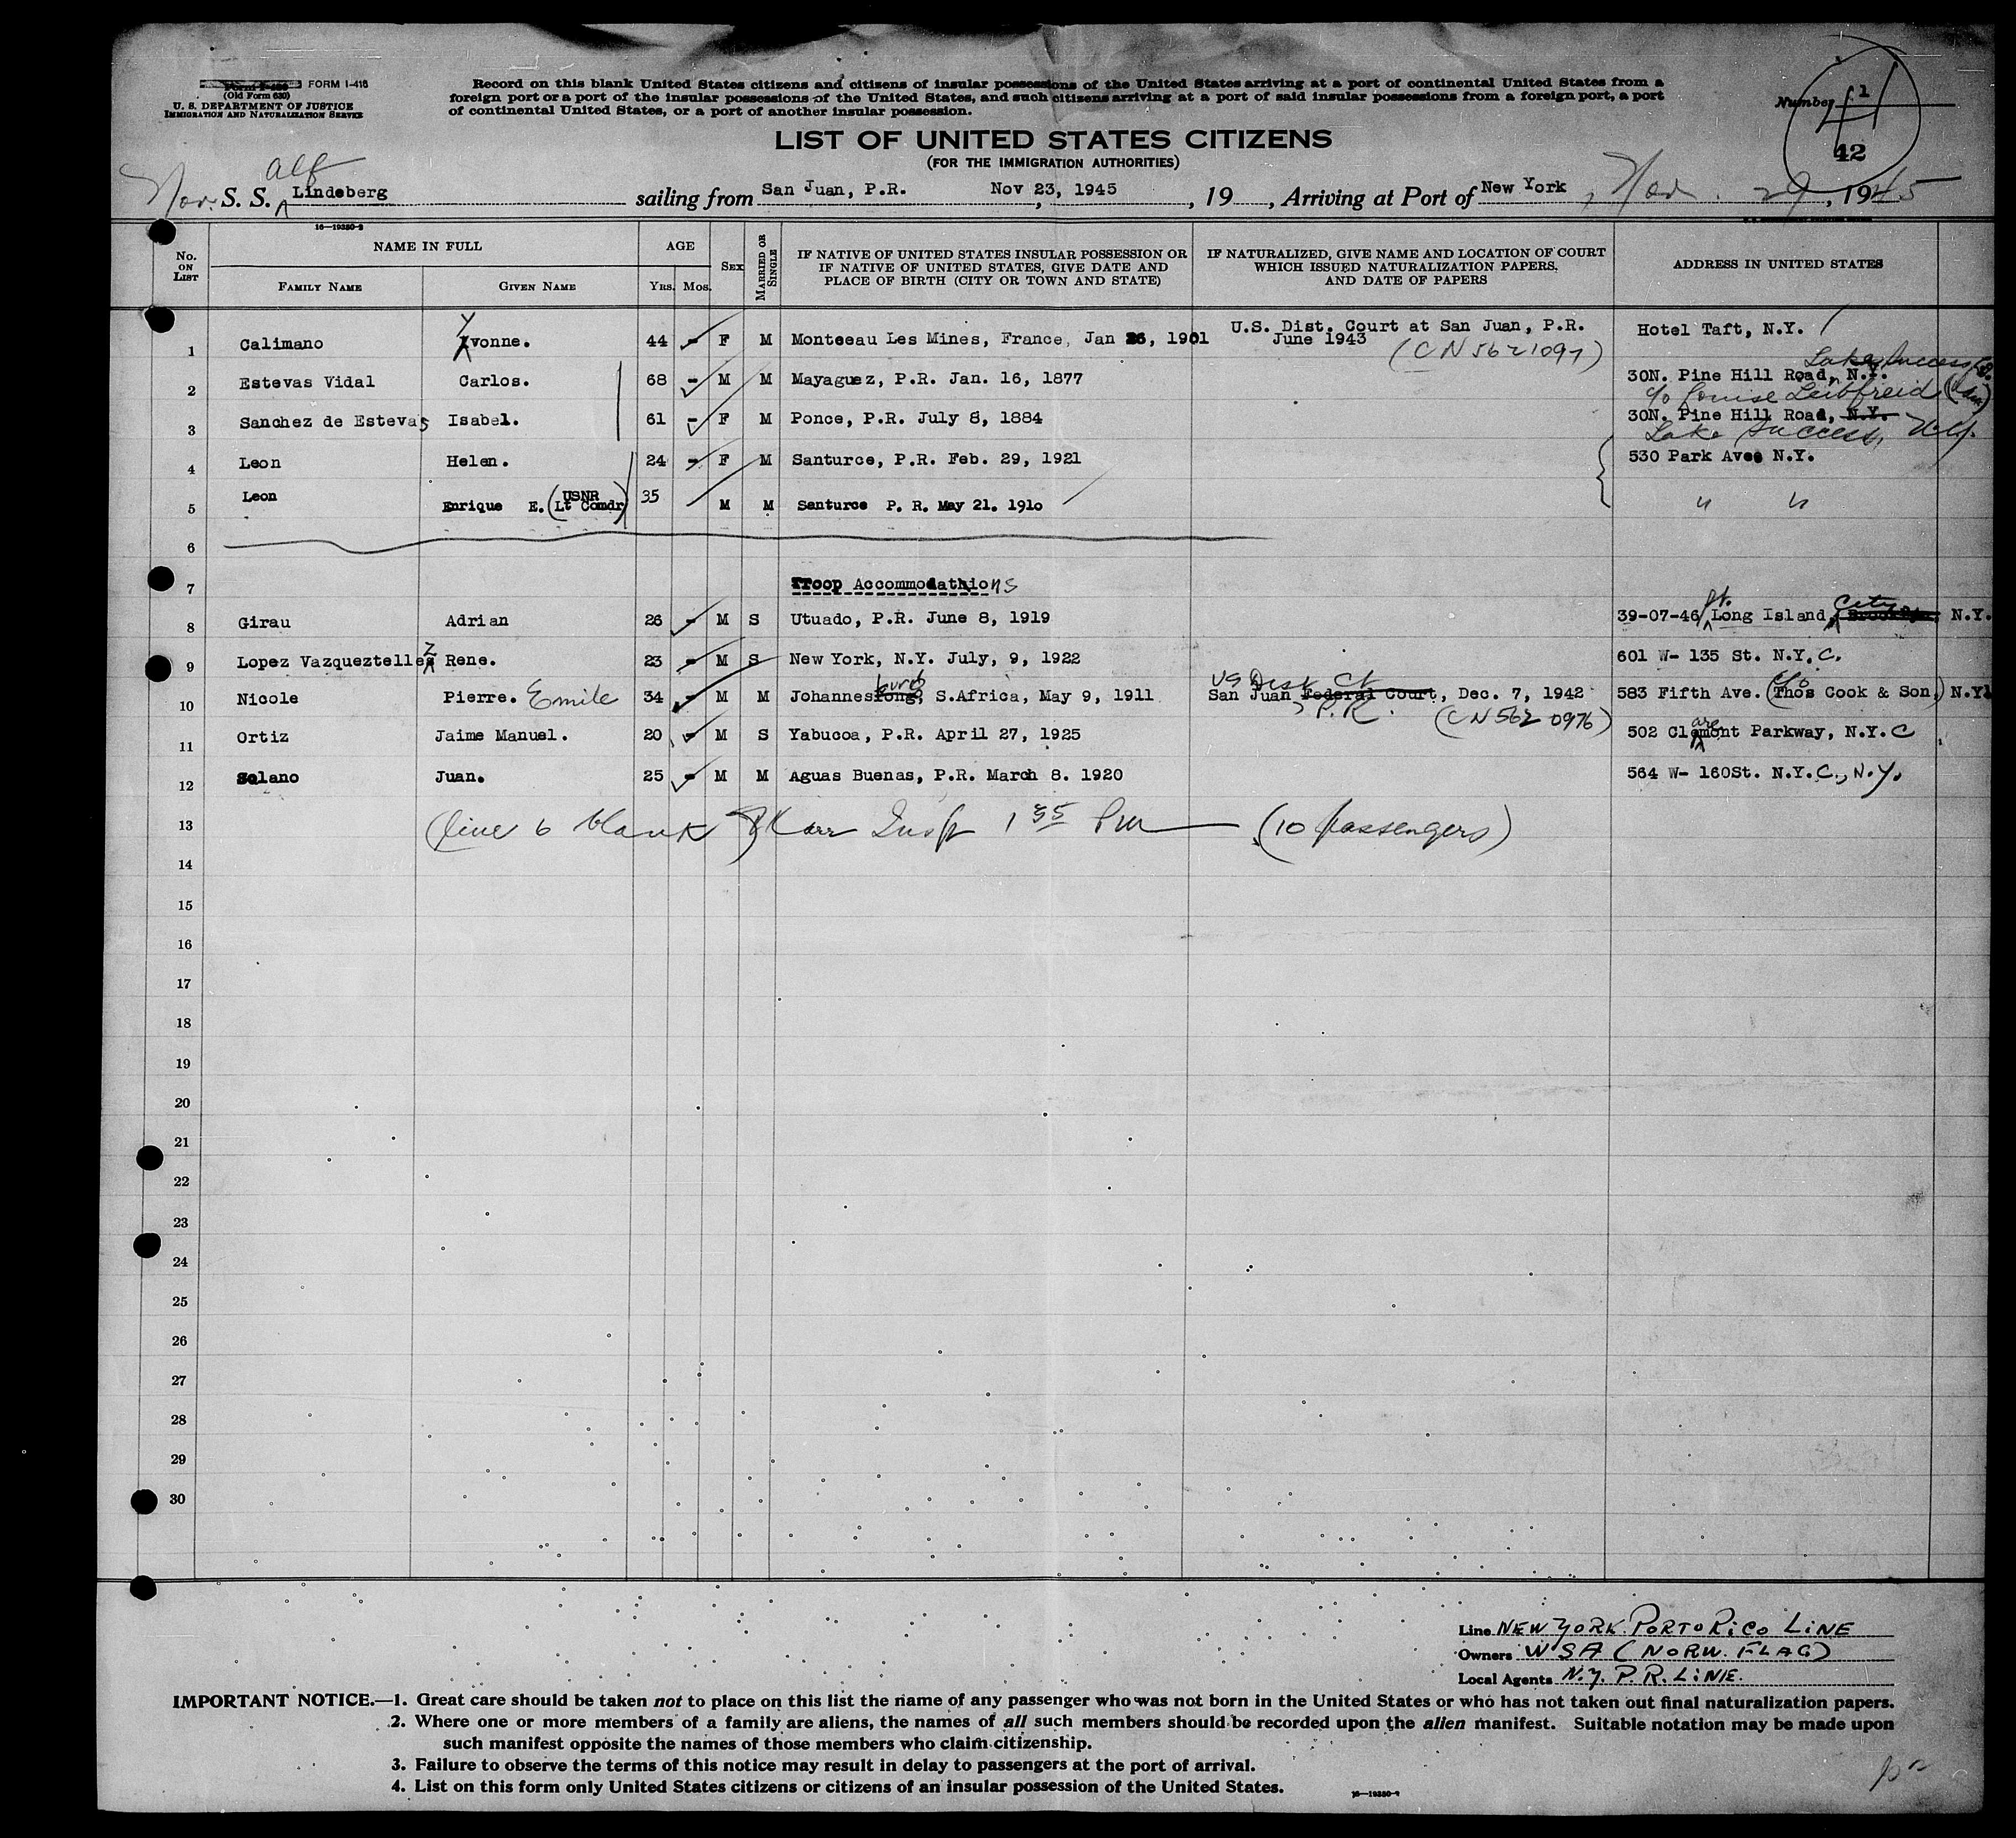 FORM I-418
(Old Form 630)
U. S. DEPARTMENT OF JUSTICE
IMMIGRATION AND NATURALIZATION SERVICE
Record on this blank United States citizens and citizens of insular possessions of the United States arriving at a port of continental United States from a
foreign port or a port of the insular possessions of the United States, and such citizens arriving at a port of said insular possessions from a foreign port, a port
of continental United States, or a port of another insular possession.
Number 1
41
42
LIST OF UNITED STATES CITIZENS
(FOR THE IMMIGRATION AUTHORITIES)
Nor. S. S. Alf Lindeberg sailing from San Juan, P.R. Nov 23, 1945, 19 , Arriving at Port of New York, Nov. 29, 1945
16—19350-2
No. ON LIST
NAME IN FULL
FAMILY NAME
GIVEN NAME
AGE
YRS. MOS.
SEX
MARRIED OR SINGLE
IF NATIVE OF UNITED STATES INSULAR POSSESSION OR
IF NATIVE OF UNITED STATES, GIVE DATE AND
PLACE OF BIRTH (CITY OR TOWN AND STATE)
IF NATURALIZED, GIVE NAME AND LOCATION OF COURT
WHICH ISSUED NATURALIZATION PAPERS,
AND DATE OF PAPERS
ADDRESS IN UNITED STATES
1 Calimano Yvonne. 44 - F M Monteeau Les Mines, France, Jan 26, 1901 U.S. Dist. Court at San Juan, P.R. Hotel Taft, N.Y.
June 1943 (CN 5621097)
Lake Success
2 Estevas Vidal Carlos. 68 - M M Mayaguez, P.R. Jan. 16, 1877 30N. Pine Hill Road, N.Y.
c/o Louise Leibfreid
3 Sanchez de Estevas Isabel. 61 - F M Ponce, P.R. July 8, 1884 30N. Pine Hill Road, N.Y.
Lake Success, N.Y.
4 Leon Helen. 24 - F M Santurce, P.R. Feb. 29, 1921 530 Park Ave N.Y.
5 Leon Enrique E. (USNR Lt Comdr) 35 M M Santurce P. R. May 21. 1910 " "
6
7 Troop Accommodathions
8 Girau Adrian 26 - M S Utuado, P.R. June 8, 1919 39-07-46 St. Long Island City Brooklyn, N.Y.
9 Lopez Vazqueztellez Rene. 23 - M S New York, N.Y. July, 9, 1922 601 W- 135 St. N.Y.C.
10 Nicole Pierre. Emile 34 - M M Johannesburg, S.Africa, May 9, 1911 San Juan Federal Court, US Dist Ct P.R. Dec. 7, 1942 583 Fifth Ave. (c/o Thos Cook & Son) N.Y.
(CN 562 0976)
11 Ortiz Jaime Manuel. 20 - M S Yabucoa, P.R. April 27, 1925 502 Claremont Parkway, N.Y.C
12 Solano Juan. 25 - M M Aguas Buenas, P.R. March 8. 1920 564 W- 160St. N.Y.C., N.Y.
13 (line 6 blank) Insp 1 35 Pm (10 passengers)
14
15
16
17
18
19
20
21
22
23
24
25
26
27
28
29
30
Line NEW YORK PORTO RICO LINE
Owners WSA (NORW. FLAG)
Local Agents N.Y. P.R. LINE.
IMPORTANT NOTICE.—1. Great care should be taken not to place on this list the name of any passenger who was not born in the United States or who has not taken out final naturalization papers.
2. Where one or more members of a family are aliens, the names of all such members should be recorded upon the alien manifest. Suitable notation may be made upon
such manifest opposite the names of those members who claim citizenship.
3. Failure to observe the terms of this notice may result in delay to passengers at the port of arrival.
4. List on this form only United States citizens or citizens of an insular possession of the United States.
16—19350-2